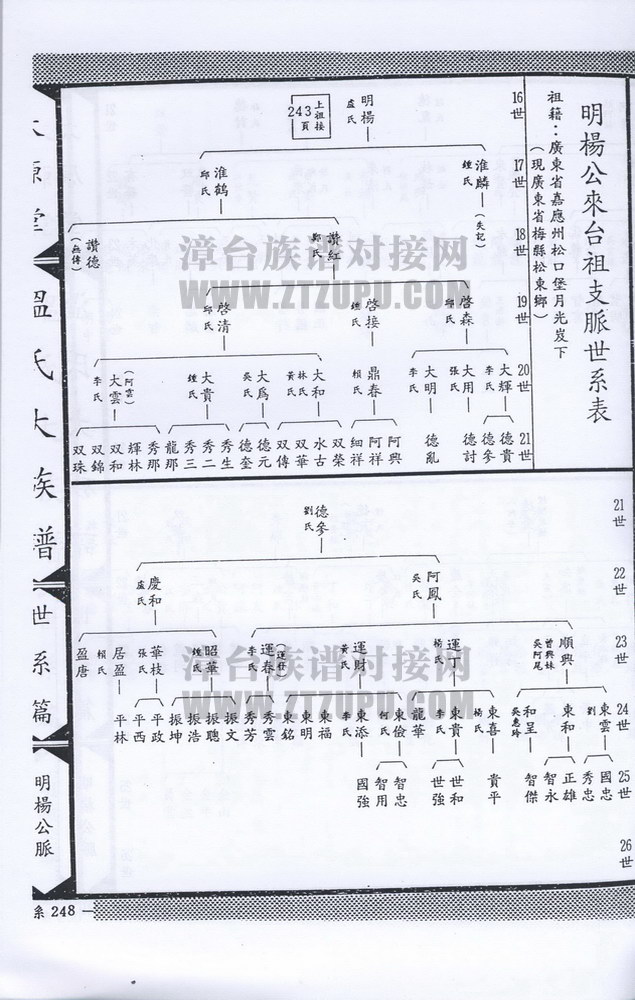 明楊公來台祖支脈世系表
祖籍：廣東省嘉應州松口堡月光岌下
（現廣東省梅縣松東鄉）
16世
17世
18世
19世
20世
21世
明楊
盧氏
上祖接
243頁
淮麟
鍾氏
（失記）
淮鶴
邱氏
讚紅
鄭氏
讚德
（無傳）
啓森
邱氏
啓接
鍾氏
啓清
邱氏
大輝
李氏
大用
張氏
大明
李氏
鼎春
賴氏
大和
林氏
黃氏
大為
吳氏
大貴
鍾氏
（阿雲）
大雲
李氏
德貴
德參
德討
德亂
阿興
阿祥
細祥
双榮
水古
双華
双傳
德元
德奎
秀生
秀二
秀三
龍那
秀那
輝林
双和
双錦
双珠
21世
22世
23世
24世
25世
26世
德參
劉氏
阿鳳
吳氏
慶和
盧氏
順興
曾興妹
吳阿尾
運丁
楊氏
運財
黃氏
運春
李氏
昭華
鍾氏
華枝
張氏
居盈
賴氏
盈唐
東雲
劉
東和
和呈
吳惠玲
東喜
楊氏
東貴
李氏
龍華
東儉
何氏
東添
李氏
東福
東明
東銘
秀雲
秀芳
振文
振聰
振浩
振坤
平政
平西
平林
國忠
秀忠
正雄
智永
智傑
貴平
世和
世強
智忠
智用
國強
堂
溫氏大族譜
世系篇
明楊公脈
系 248
漳台族谱对接网
WWW.ZTZUPU.COM
漳台族谱对接网
WWW.ZTZUPU.COM